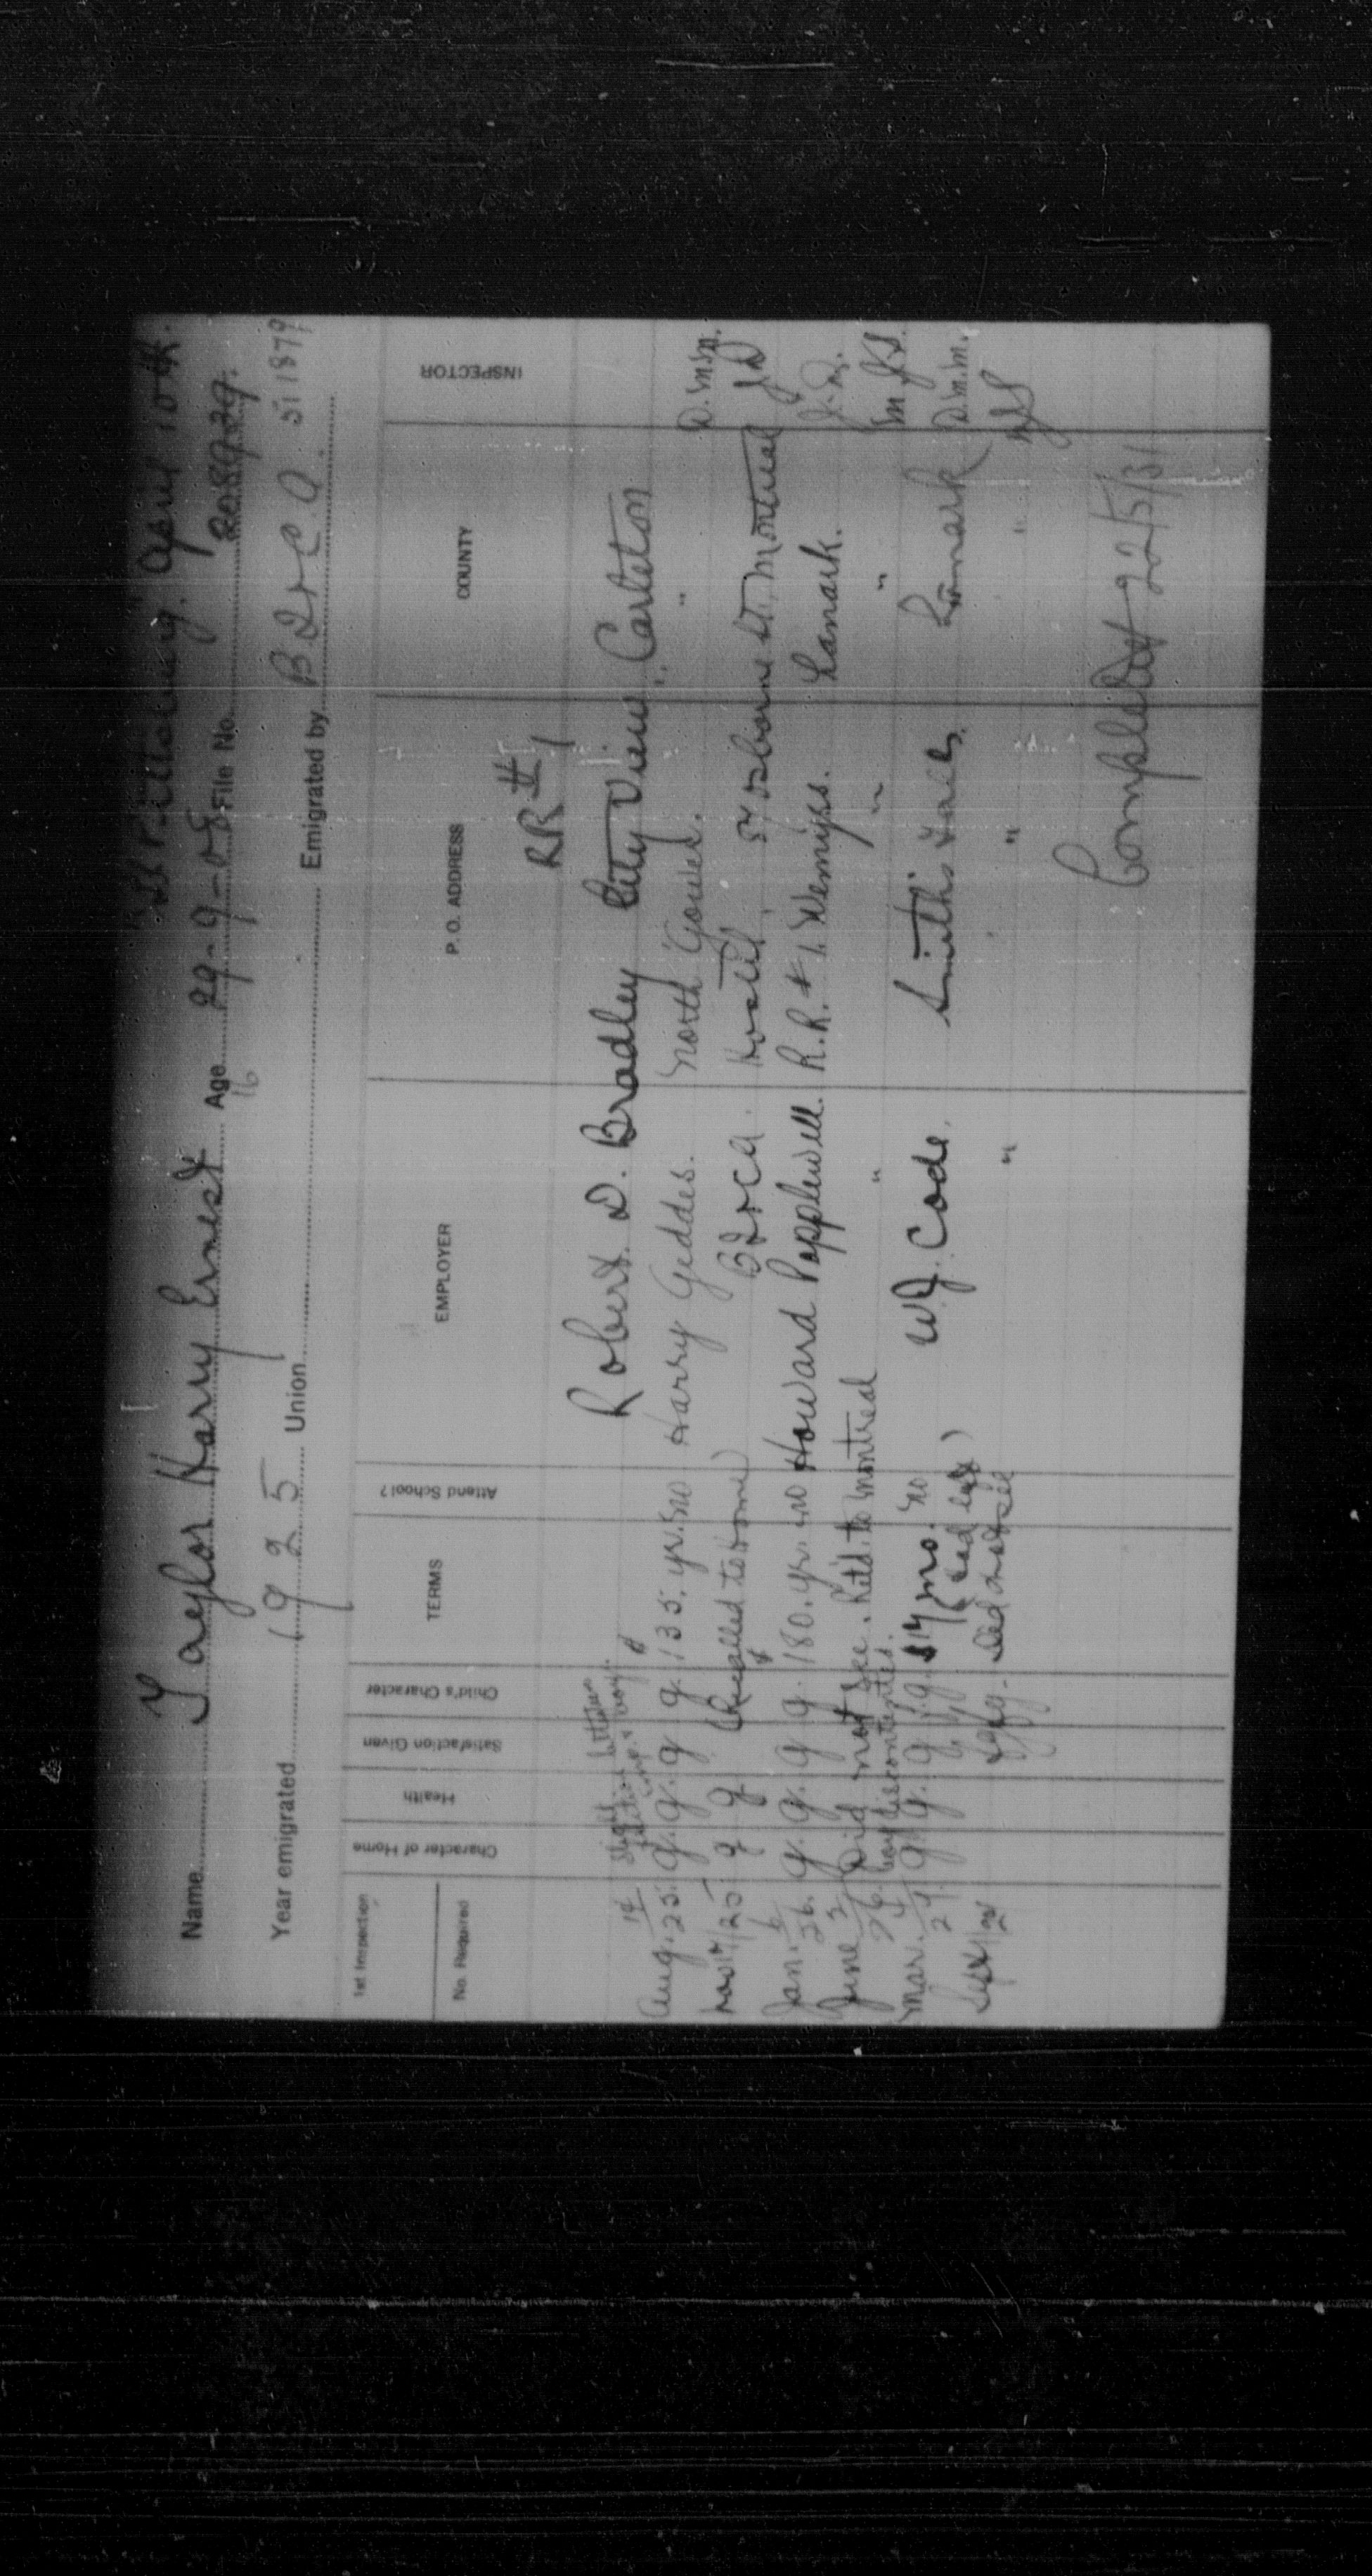 SS Pittsburg. April 10th.
Name Taylor Harry Ernest Age 29-9-08 File No.
16
Year emigrated 1925 Union Emigrated by B.I.&C.A. 511879
1st Inspection
No. Required
Character of Home
Health
Satisfaction Given
Child's Character
TERMS
Attend School?
EMPLOYER
P.O. ADDRESS
COUNTY
INSPECTOR
RR#1
Robert D. Bradley City View Carleton
Slight
Aug. 14/25. g. g. g. g. $135. yr. no Harry Geddes. North Gower. " " D.M.M.
Nov 17/25 g g g (Recalled to Home) B I & C A. Hostel. 87 Osborne St. Montreal JD
Jan. 6/26. g. g. g. g. $180. yr. no Howard Popplewell. R.R. #1. Wemyss. Lanark. J.D.
June 2/26. Did not see. Ret'd. to Montreal " " "
boy discontented.
Mar. 4/27. g. g. g. g. $14 mo. no W.J. Code. Smiths Falls. Lanark D.M.M.
(Lad left)
Did not see " " "
Completed 22/5/31